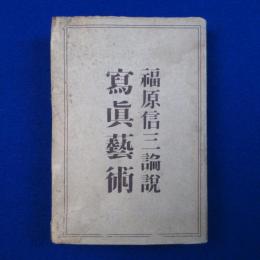 福原信三論說
寫眞藝術